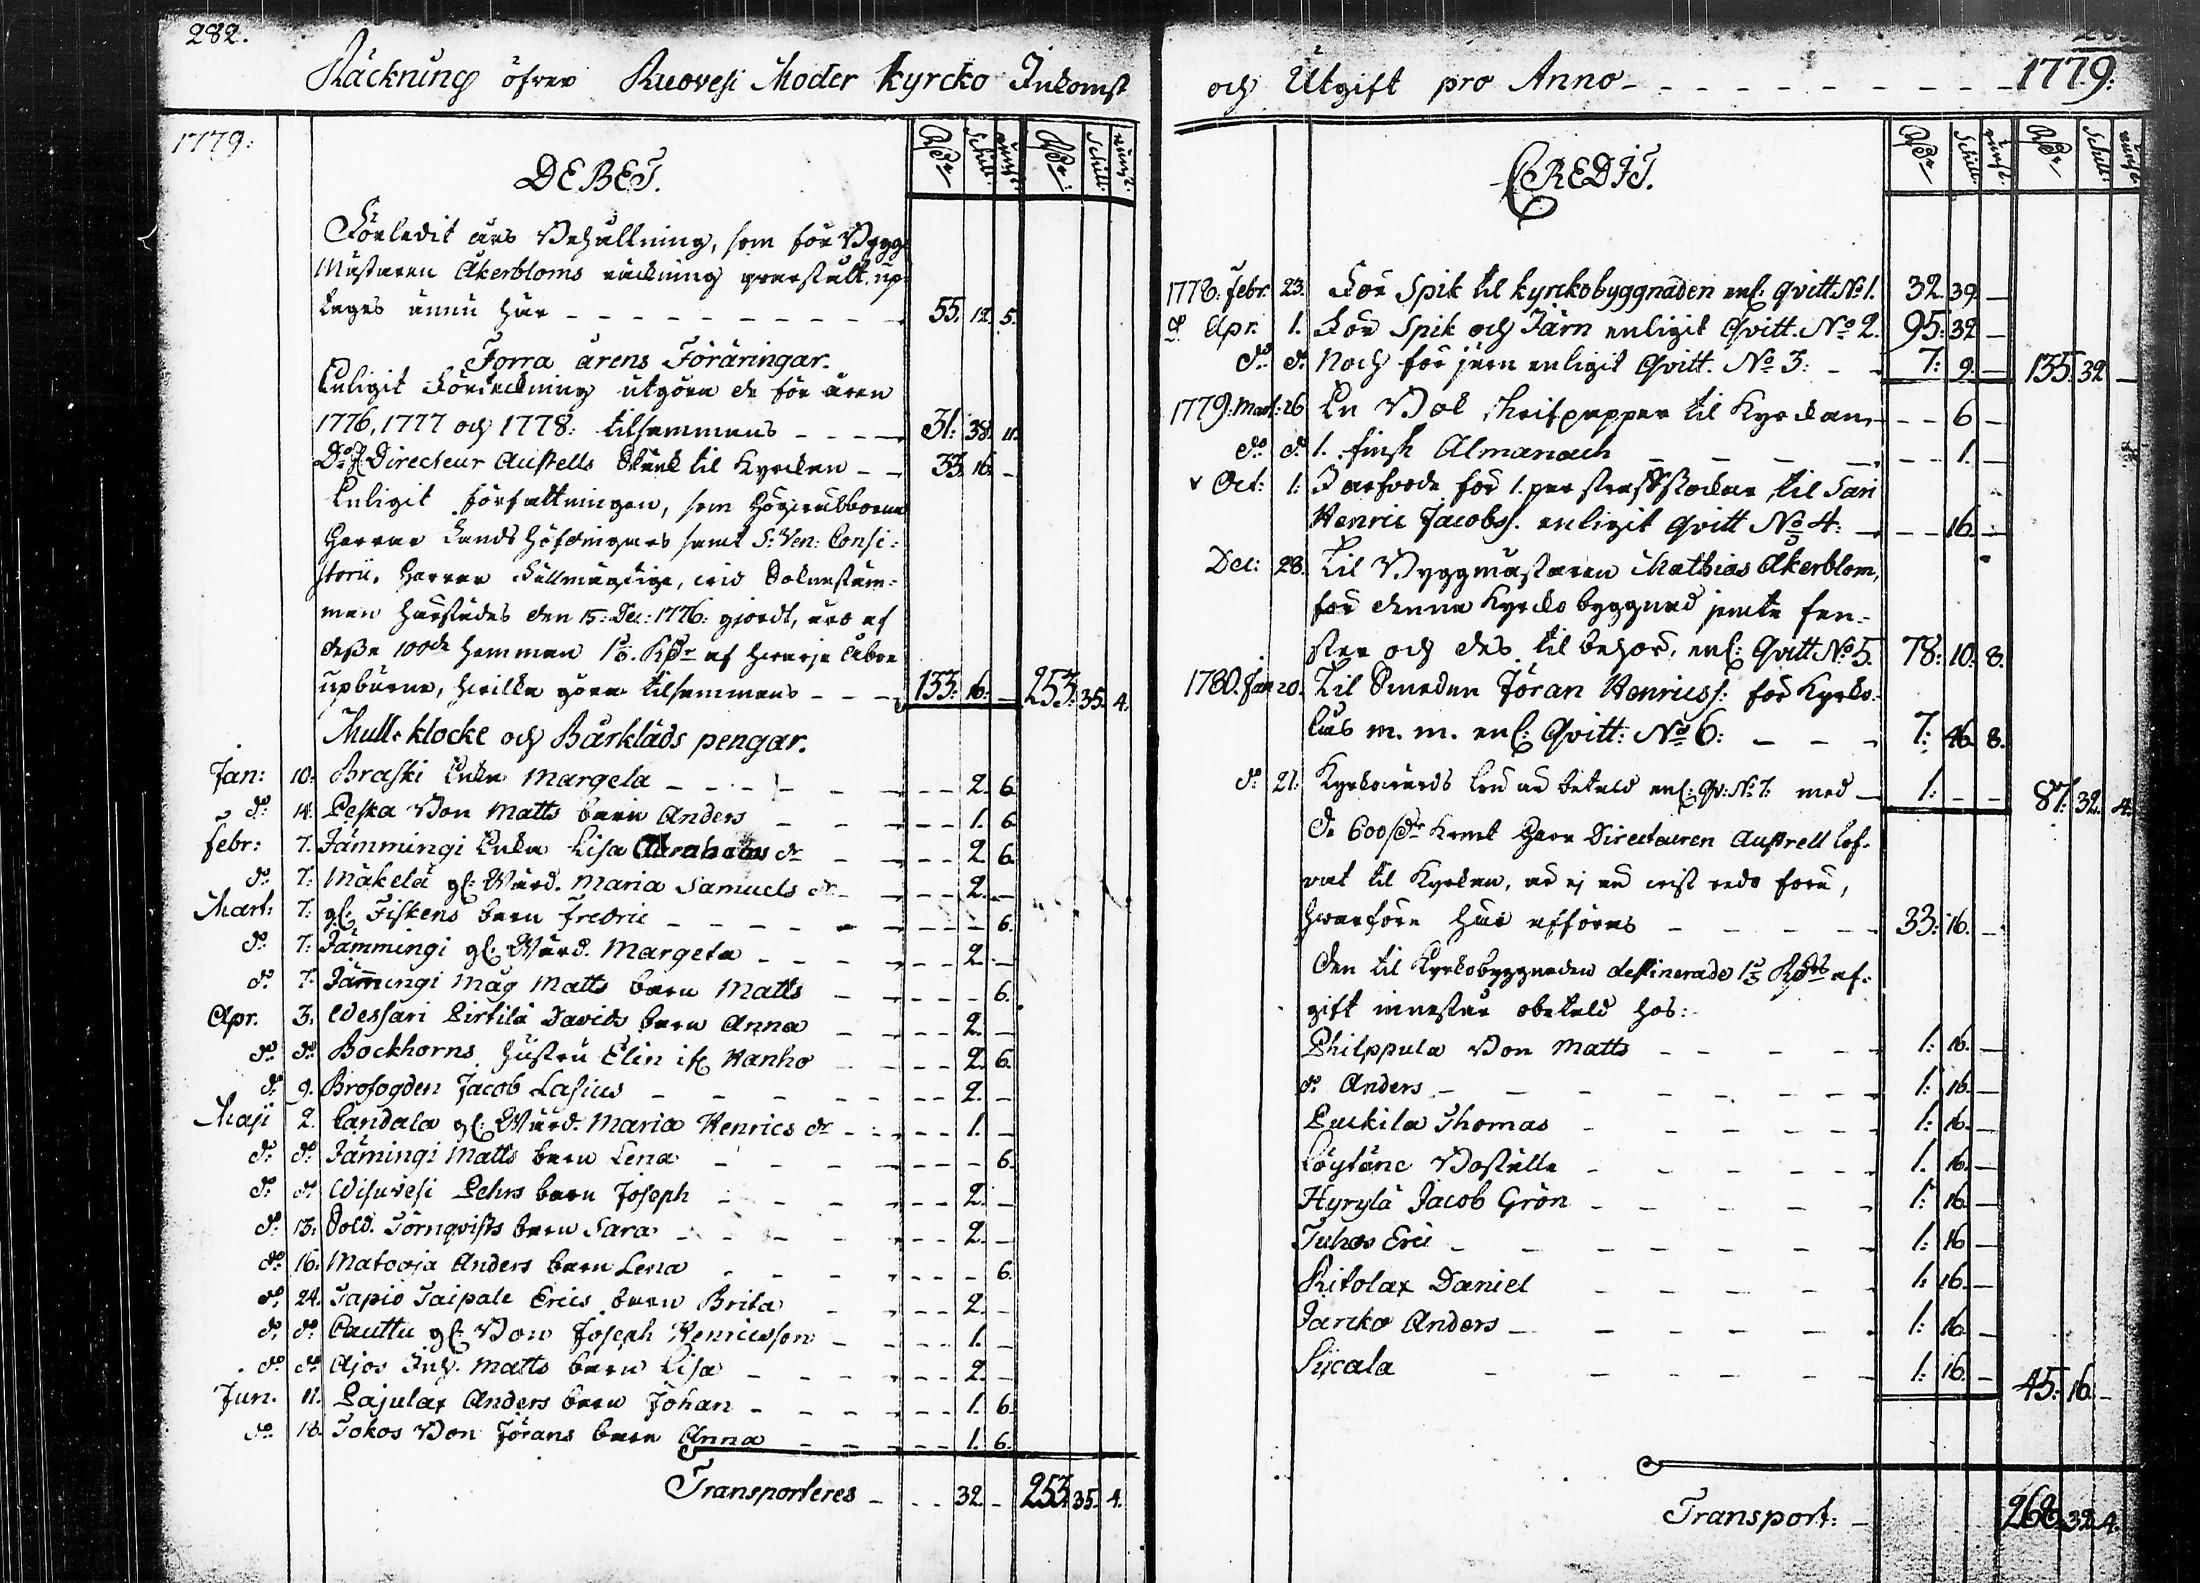 282.
Räckning öfver Ruovesi Moder Kyrcko Inkomst
1779:
Rdr Schill: runst: Rdr: Schill: runst:
DEBET.
Förledit års Behållning, som för Bygg
Mästaren Åkerbloms räckning qvarstält, up-
tages ännu här 55. 12. 5.
Förra årens Föräringar.
Enligit Förteckning utgöra de för åren
1776, 1777 och 1778: tilsammans 31: 38. 11.
Directeur Austrells Skänk til Kyrckan 33. 16. -
Enligit författningen, som Högvälborne
Herrar Landshöfdingens samt S: Ven: Consi-
storii, Herrar Fullmägtige, wid Soknestäm-
man härstädes den 15: Dec: 1776: gjordt, äro af
desse 100de hemman 1 1/3. Rdr af hvarje åbo
upburne, hvilka göra tilsammans 133: 16: - 253: 35. 4.
Mull- klocke och Bårkläds pengar.
Jan: 10: Braski Enka Margeta 2. 6.
do 14. Peska Bon Matts barn Anders 1. 6.
Febr: 7. Jämmingi Enka Lisa Abrahams dr 2. 6.
do 7. Mäkelä gl: Wärd. Maria Samuels dr 2. -
Mart: 7. gl: Fiskens barn Fredric 6.
do 7. Jämmingi gl: Wärd. Margeta 2. -
do 7. Jämingi Måg Matts barn Matts 6.
Apr. 3. Wessari Pirtilä Davids barn Anna 2. -
do do Bockhorns Hustru Elin 2. 6.
do 9. Brofogden Jacob Lasius 2. -
Maji 2. Pandala gl: Wärd. Maria Henrics dr 1. -
do do Jämingi Matts barn Lena 6.
do do Wisuvesi Pehrs barn Joseph 2. -
do 13. Sold. Törnqvists barn Sara 2. -
do 16. Matooja Anders barn Lena 6.
do 24. Tapio Taipale Erics barn Brita 2. -
do do Pauttu gl: Bon Joseph Henricsson 1. -
do do Ajos Inh. Matts barn Lisa 2. -
Jun. 11. Pajulax Anders barn Johan 1. 6.
do 18. Jokos Bon Jörans barn Anna 1. 6.
Transporteres 32. - 253. 35. 4.
och Utgift pro Anno 1779:
Rdr Schill: runst: Rdr Schill: runst:
CREDIT.
1778. Febr: 23. För Spik til kyrckobyggnaden enl: qvitt No 1. 32. 39. -
do Apr. 1. För Spik och Järn enligit Qvitt. No 2. 95: 32. -
do do Noch för järn enligit Qvitt. No 3: 7: 9. - 135. 32. -
1779: Mart: 26 En Bok skrifpapper til Kyrckan 6 -
do do 1. finsk Almanach 1. -
Oct: 1: för 1. par til Sari
Henric Jacobs. enligit qvitt No 4: 16. -
Dec: 28. Til Byggmästaren Mathias Åkerblom,
för denna Kyrcko byggnad jemte fen-
ster och des til behör, enl: Qvitt No 5. 78: 10. 8.
1780. Jan 20. Til Smeden Jöran Henricss: för Kyrko-
lås m. m. enl: Qvitt: No 6: 7: 46. 8.
do 21: Kyrkovärds lön är betald enl: Qv: No 7: med 1: - - 87: 32. 4.
De 600 dr Kmt Herr Directeuren Austrell lof-
vat til Kyrckan, är ej än wist reds före,
hvarföre här afföres 33: 16. -
Den til Kyrkobyggnaden destinerade 1 1/3 Rdrs af-
gift innestår obetald hos:
Philppula Bon Matts 1: 16. -
do Anders 1: 16. -
Puckila Thomas 1: 16. -
Löytäne Boställe 1. 16. -
Hyrylä Jacob Grön 1: 16. -
Juhos Eric 1: 16. -
Ritolax Daniel 1: 16. -
Jarcko Anders 1: 16. -
Siicala 1: 16. - 45: 16. -
Transport: 268. 32. 4.